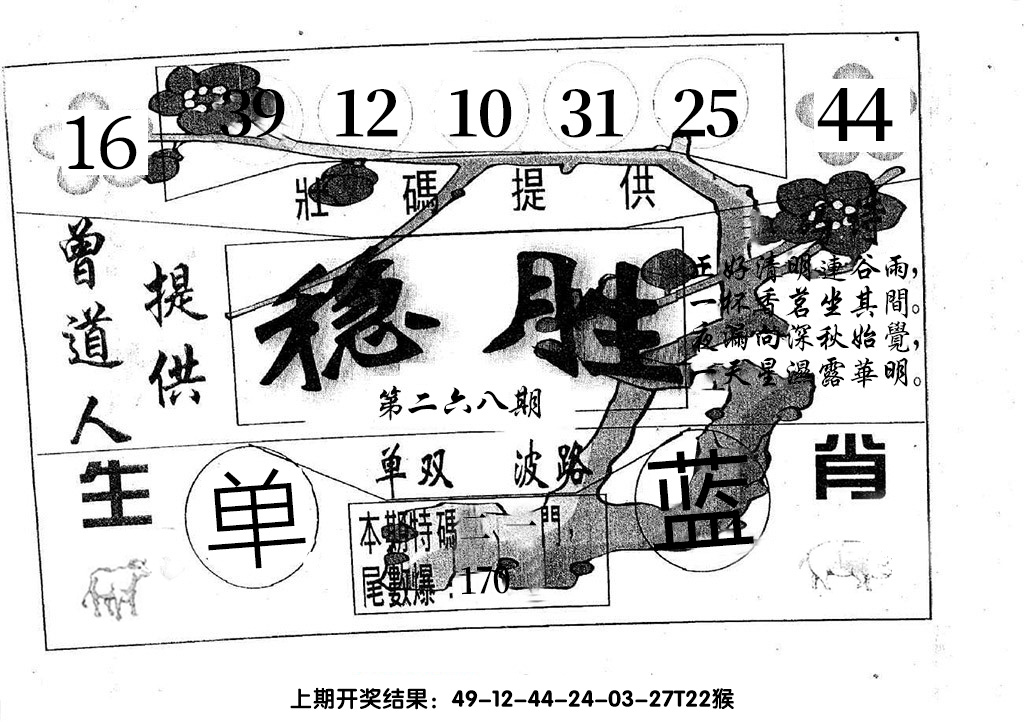 16 39 12 10 31 25 44
壯碼提供
特
曾道人
提供
稳胜
第二六八期
正好清明連谷雨，
一杯香茗坐其間。
夜漏向深秋始覺，
一天星濕露華明。
生肖
单双 波路
单
蓝
本期特碼二、一門，
尾數爆：170
上期开奖结果：49-12-44-24-03-27T22猴